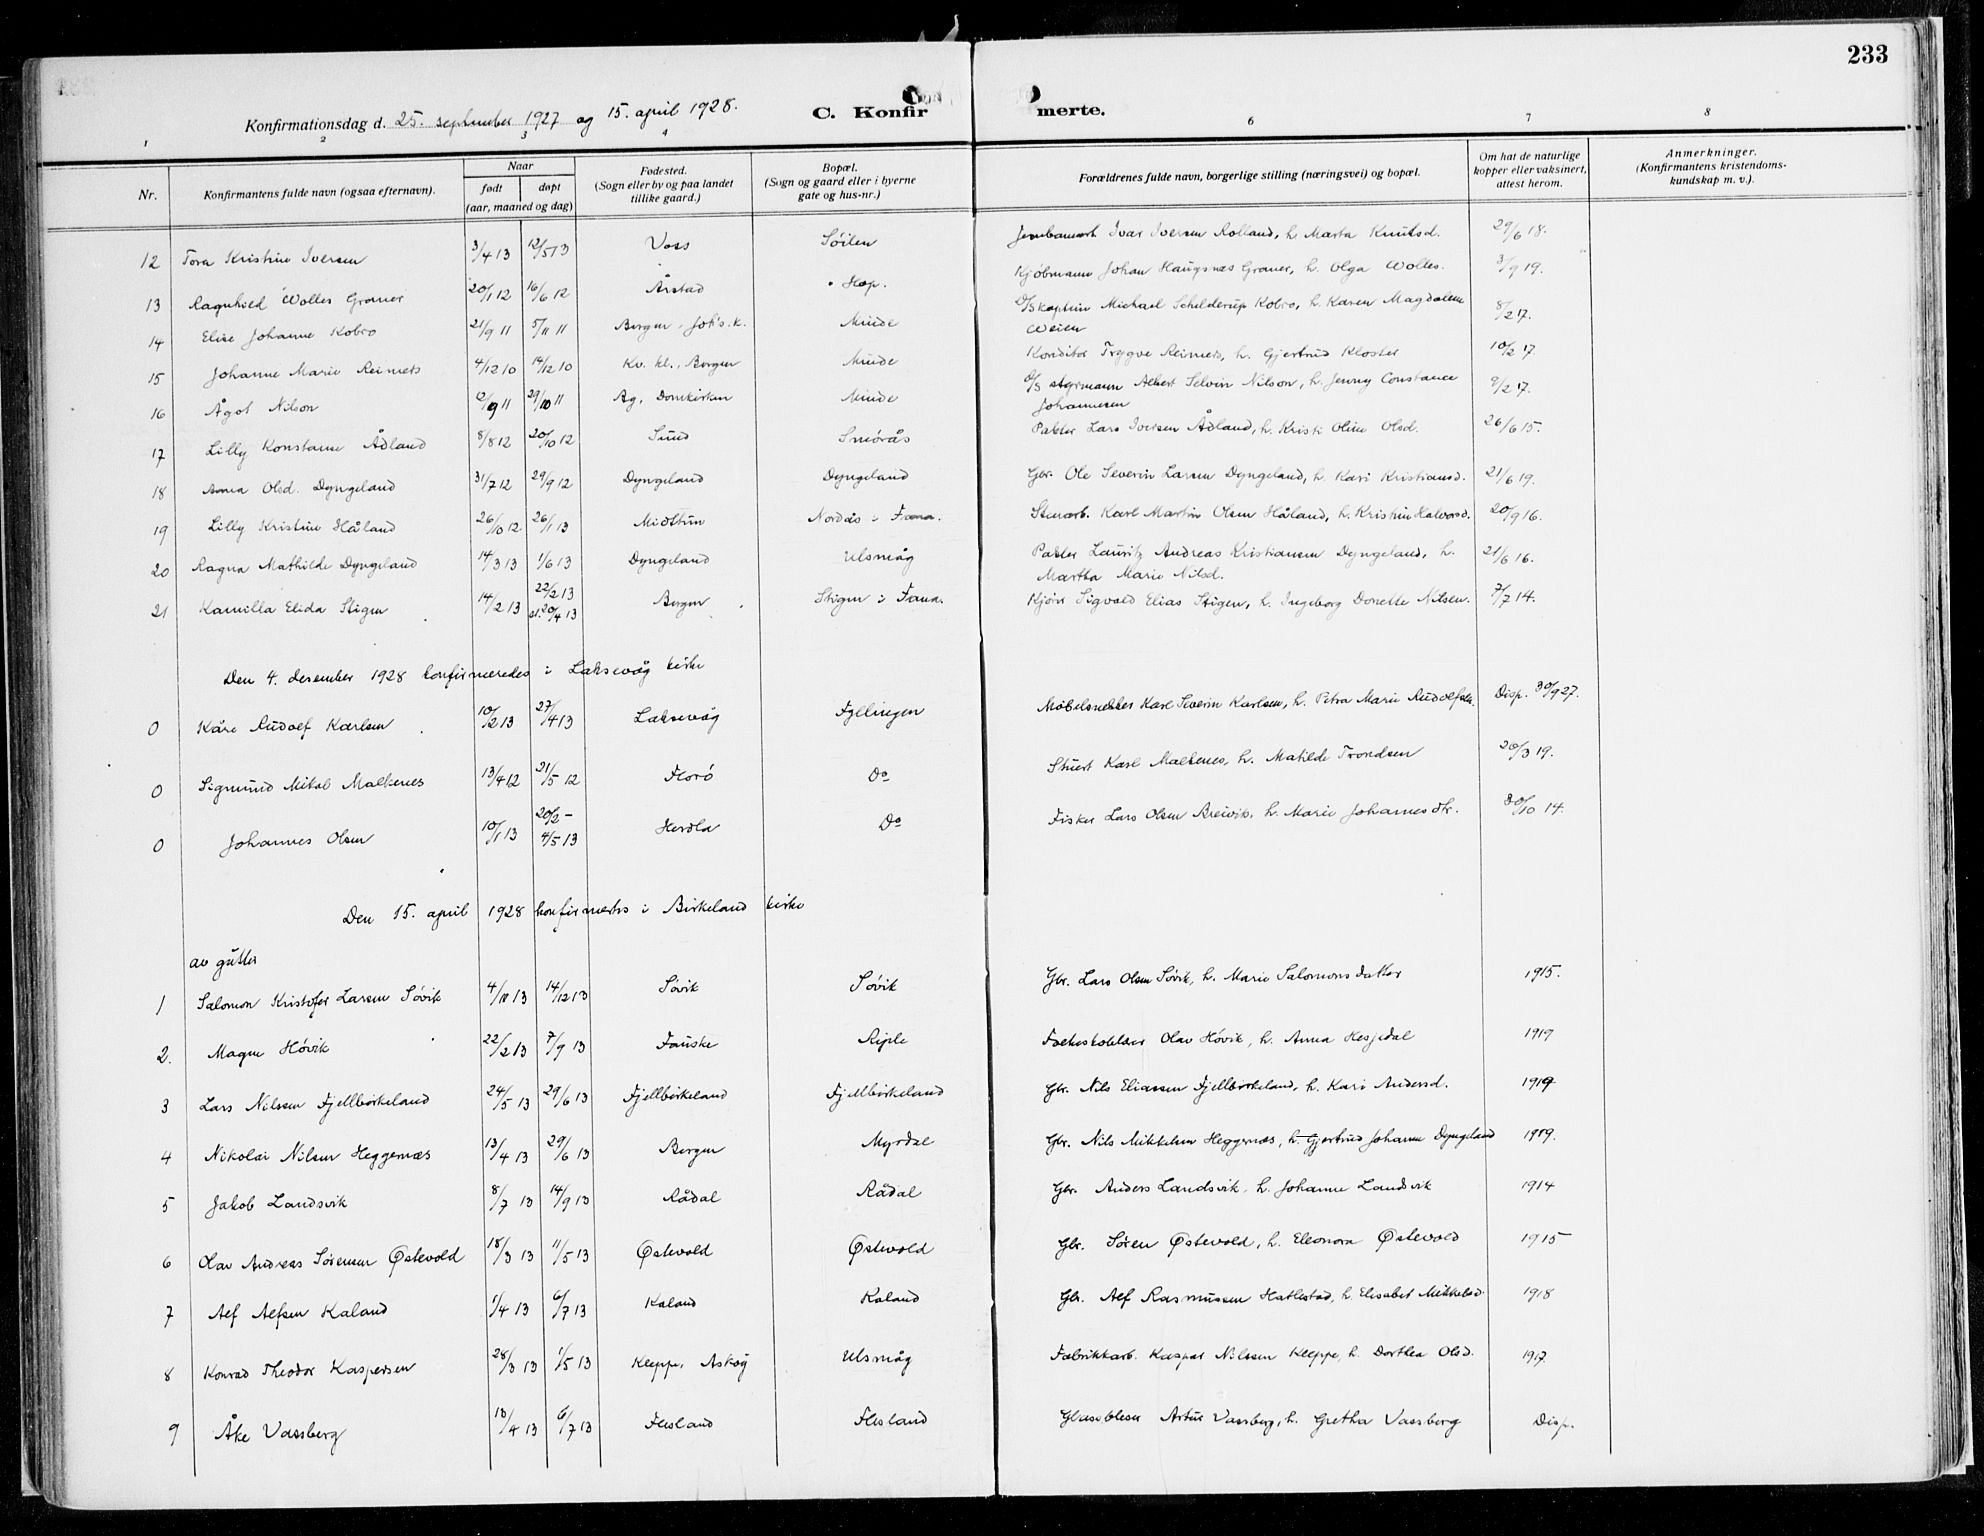 233
Konfirmationsdag d. 25. september 1927 og 15. april 1928. C. Konfir merte.
1 2 3 4 6 7 8
Nr. Konfirmantens fulde navn (ogsaa efternavn). Naar født døpt (aar, maaned og dag) Fødested. (Sogn eller by og paa landet tillike gaard.) Bopæl. (Sogn og gaard eller i byerne gate og hus-nr.) Forældrenes fulde navn, borgerlige stilling (næringsvei) og bopæl. Om hat de naturlige kopper eller vaksinert, attest herom. Anmerkninger. (Konfirmantens kristendoms-kundskap m. v.).
12 Tora Kristine Iversen 3/4 13 12/5 13 Voss Søilen Ivar Iversen Rolland, h. Marta Knutsd. 29/6 18.
13 Ragnhild Wolles Graner 20/1 12 16/6 12 Årstad Hop. Kjøbmann Johan Haugsnæs Graner, h. Olga Wolles. 3/9 19.
14 Elise Johanne Kobro 21/9 11 5/11 11 Bergen, Joh's. k. Minde D/S kaptein Michael Schelderup Kobro, h. Karen Magdalene Weien 8/2 17.
15 Johanne Marie Reimers 4/12 10 14/12 10 Kv. kl., Bergen Minde Konditor Trygve Reimers, h. Gjertrud Kloster 10/2 17
16 Ågot Nilson 12/9 11 29/10 11 Ag, Domkirken Minde D/S styrmann Albert Selvin Nilson, h. Jenny Constance Johannesen 9/2 17.
17 Lilly Konstanse Ådland 8/8 12 20/10 12 Sund Smørås Pakter Lars Iversen Ådland, h. Kristi Oline Olsd. 26/6 15.
18 Anna Olsd. Dyngeland 31/7 12 29/9 12 Dyngeland Dyngeland Gbr. Ole Severin Larsen Dyngeland, h. Kari Kristiansd. 21/6 19.
19 Lilly Kristine Håland 26/10 12 26/1 13 Midttun Nordås i Fana. Stenarb. Karl Martin Olsen Håland, h. Kristine Halvorsd. 20/9 16.
20 Ragna Mathilde Dyngeland 14/3 13 1/6 13 Dyngeland Ulsmåg Pakter Lauritz Andreas Kristiansen Dyngeland, h. Martha Marie Nilsd. 21/6 16.
21 Kamilla Elida Stigen 14/2 13 22/2 13 st. 20/4 13 Bergen Stigen i Fana. Kjører Sigvald Elias Stigen, h. Ingeborg Donette Nilsen. 7/7 14.
Den 4. desember 1928 konfirmeredes i Laksevåg kirke
0 Kåre Rudolf Karlsen 10/2 13 27/4 13 Laksevåg Fyllingen Møbelsnekker Karl Severin Karlsen, h. Petra Marie Rudolfsdt. Disp. 30/9 27.
0 Sigmund Mikal Malkenes 13/4 12 21/5 12 Florø Do Stuert Karl Malkenes, h. Matilde Trondsen 20/3 19.
0 Johannes Olsen 10/1 13 20/2 - 4/5 13 Herdla Do Fisker Lars Olsen Breivik, h. Marie Johannesdtr. 30/10 14.
Den 15. april 1928 konfirmertes i Birkeland kirke
av gutter
1 Salomon Kristofer Larsen Søvik 4/11 13 14/12 13 Søvik Søvik Gbr. Lars Olsen Søvik, h. Marie Salomonsdatter 1915.
2. Magne Høvik 22/2 13 7/9 13 Fauske Riple Folkeskolelær. Olav Høvik, h. Anna Hesjedal 1919
3 Lars Nilssen Fjellbirkeland 24/5 13 29/6 13 Fjellbirkeland Fjellbirkeland Gbr. Nils Eliassen Fjellbirkeland, h. Kari Andersd. 1919
4 Nikolai Nilsen Heggernæs 13/4 13 29/6 13 Bergen Myrdal Gbr. Nils Mikkelsen Heggernæs, h. Gjertrud Johanne Dyngeland 1919.
5 Jakob Landsvik 8/7 13 14/9 13 Rådal Rådal Gbr. Anders Landsvik, h. Johanne Landsvik 1914
6 Olav Andreas Sørensen Østevold 18/3 13 11/5 13 Østevold Østevold Gbr. Søren Østevold, h. Eleonora Østevold 1915
7 Alf Alfsen Kaland 1/4 13 6/7 13 Kaland Kaland Gbr. Alf Rasmussen Hatlestad, h. Elisabet Mikkelsd. 1918
8 Konrad Theodor Kaspersen 28/3 13 1/5 13 Kleppe, Askøy Ulsmåg Fabrikkarb. Kaspar Nilssen Kleppe, h. Dorthea Olsd. 1917.
9 Åke Vassberg 13/4 13 6/7 13 Flesland Flesland Glassbleser Artur Vassberg, h. Gretha Vassberg Disp.